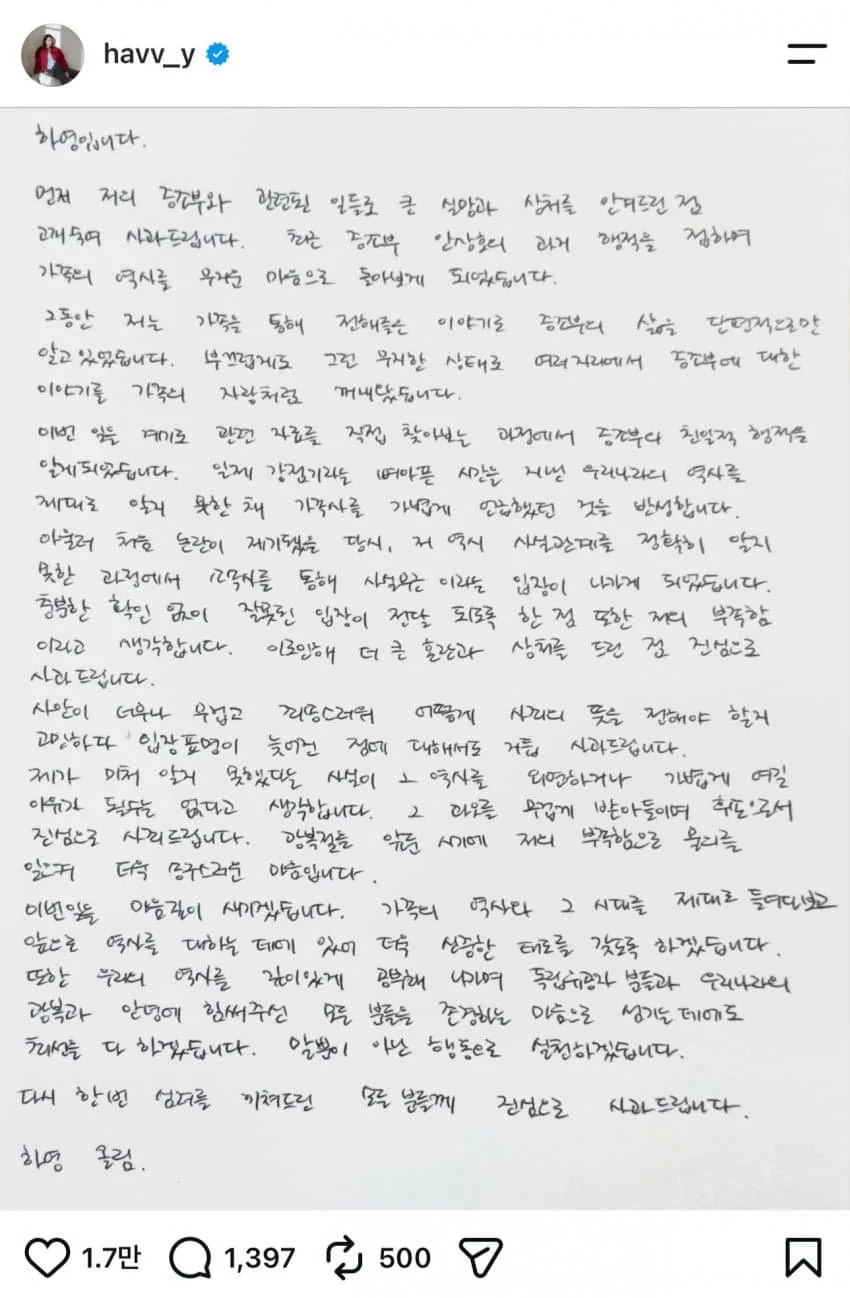 havv_y
하영입니다.
먼저 저의 증조부와 관련된 일들로 큰 실망과 상처를 안겨드린 점
고개숙여 사과드립니다. 최근 증조부 안상호의 과거 행적을 접하며
가족의 역사를 무거운 마음으로 돌아보게 되었습니다.
그동안 저는 가족을 통해 전해들은 이야기로 증조부의 삶을 단편적으로만
알고 있었습니다. 부끄럽게도 그런 무지한 상태로 여러자리에서 증조부에 대한
이야기를 가족의 자랑처럼 꺼내왔습니다.
이번 일을 계기로 관련 자료를 직접 찾아보는 과정에서 증조부의 친일적 행적을
알게되었습니다. 일제 강점기라는 뼈아픈 시간을 지나온 우리나라의 역사를
제대로 알지 못한 채 가족사를 가볍게 언급했던 것을 반성합니다.
아울러 처음 논란이 제기됐을 당시, 저 역시 사실관계를 정확히 알지
못한 과정에서 소속사를 통해 사실무근 이라는 입장이 나가게 되었습니다.
충분한 확인 없이 잘못된 입장이 전달 되도록 한 점 또한 저의 부족함
이라고 생각합니다. 이로인해 더 큰 혼란과 상처를 드린 점 진심으로
사과드립니다.
사안이 너무나 무겁고 죄송스러워 어떻게 사죄의 뜻을 전해야 할지
고민하다 입장표명이 늦어진 점에 대해서도 거듭 사과드립니다.
제가 미처 알지 못했다는 사실이 그 역사를 외면하거나 가볍게 여길
이유가 될수는 없다고 생각합니다. 그 과오를 무겁게 받아들이며 후손으로서
진심으로 사죄드립니다. 광복절을 앞둔 시기에 저의 부족함으로 물의를
일으켜 더욱 송구스러운 마음입니다.
이번일을 마음깊이 새기겠습니다. 가족의 역사와 그 시대를 제대로 들여다보고
앞으로 역사를 대하는 데에 있어 더욱 신중한 태도를 갖도록 하겠습니다.
또한 우리의 역사를 깊이있게 공부해 나가며 독립유공자 분들과 우리나라의
광복과 안녕에 힘써주신 모든 분들을 존경하는 마음으로 섬기는 데에도
최선을 다 하겠습니다. 말뿐이 아닌 행동으로 실천하겠습니다.
다시 한번 심려를 끼쳐드린 모든 분들께 진심으로 사과드립니다.
하영 올림.
1.7만 1,397 500